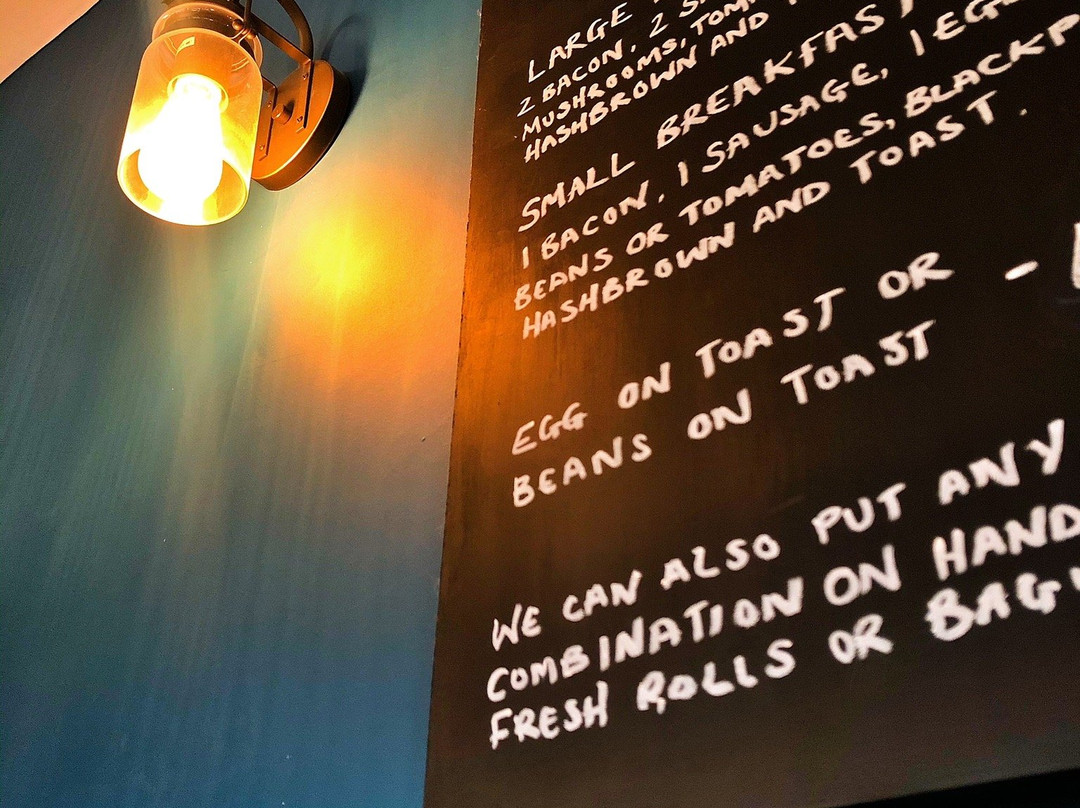 LARGE
2 BACON, 2 S
MUSHROOMS, TOM
HASHBROWN AND
SMALL BREAKFAS
1 BACON, 1 SAUSAGE, 1 EGG
BEANS OR TOMATOES, BLACKP
HASHBROWN AND TOAST.
EGG ON TOAST OR -
BEANS ON TOAST
WE CAN ALSO PUT ANY
COMBINATION ON HAND
FRESH ROLLS OR BAGU